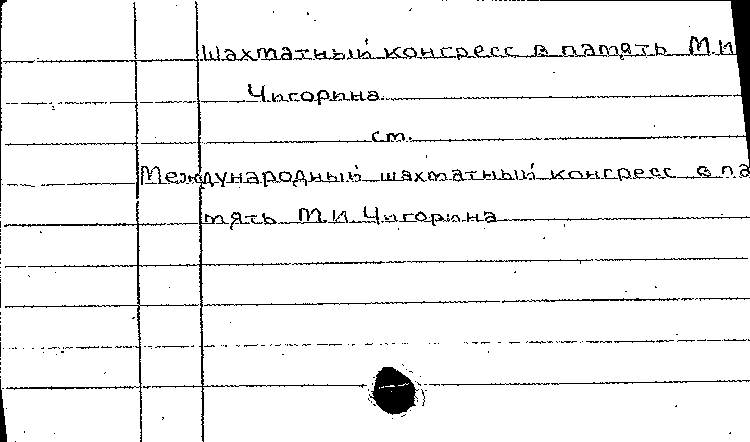 Шахматный конгресс в память М.И
Чигорина
см.
Международный шахматный конгресс в па
мять М.И. Чигорина